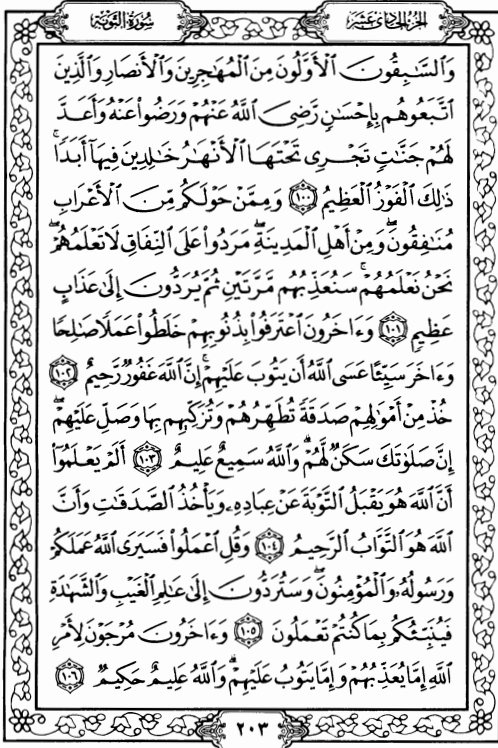 سُورَةُ التَّوْبَةِ
الجُزْءُ الحَادِي عَشَرَ
وَٱلسَّٰبِقُونَ ٱلْأَوَّلُونَ مِنَ ٱلْمُهَٰجِرِينَ وَٱلْأَنصَارِ وَٱلَّذِينَ
ٱتَّبَعُوهُم بِإِحْسَٰنٍ رَّضِىَ ٱللَّهُ عَنْهُمْ وَرَضُوا۟ عَنْهُ وَأَعَدَّ
لَهُمْ جَنَّٰتٍ تَجْرِى تَحْتَهَا ٱلْأَنْهَٰرُ خَٰلِدِينَ فِيهَآ أَبَدًا ۚ
ذَٰلِكَ ٱلْفَوْزُ ٱلْعَظِيمُ ١٠٠ وَمِمَّنْ حَوْلَكُم مِّنَ ٱلْأَعْرَابِ
مُنَٰفِقُونَ ۖ وَمِنْ أَهْلِ ٱلْمَدِينَةِ ۖ مَرَدُوا۟ عَلَى ٱلنِّفَاقِ لَا تَعْلَمُهُمْ ۖ
نَحْنُ نَعْلَمُهُمْ ۚ سَنُعَذِّبُهُم مَّرَّتَيْنِ ثُمَّ يُرَدُّونَ إِلَىٰ عَذَابٍ
عَظِيمٍ ١٠١ وَءَاخَرُونَ ٱعْتَرَفُوا۟ بِذُنُوبِهِمْ خَلَطُوا۟ عَمَلًا صَٰلِحًا
وَءَاخَرَ سَيِّئًا عَسَى ٱللَّهُ أَن يَتُوبَ عَلَيْهِمْ ۚ إِنَّ ٱللَّهَ غَفُورٌ رَّحِيمٌ ١٠٢
خُذْ مِنْ أَمْوَٰلِهِمْ صَدَقَةً تُطَهِّرُهُمْ وَتُزَكِّيهِم بِهَا وَصَلِّ عَلَيْهِمْ ۖ
إِنَّ صَلَوٰتَكَ سَكَنٌ لَّهُمْ ۗ وَٱللَّهُ سَمِيعٌ عَلِيمٌ ١٠٣ أَلَمْ يَعْلَمُوٓا۟
أَنَّ ٱللَّهَ هُوَ يَقْبَلُ ٱلتَّوْبَةَ عَنْ عِبَادِهِۦ وَيَأْخُذُ ٱلصَّدَقَٰتِ وَأَنَّ
ٱللَّهَ هُوَ ٱلتَّوَّابُ ٱلرَّحِيمُ ١٠٤ وَقُلِ ٱعْمَلُوا۟ فَسَيَرَى ٱللَّهُ عَمَلَكُمْ
وَرَسُولُهُۥ وَٱلْمُؤْمِنُونَ ۖ وَسَتُرَدُّونَ إِلَىٰ عَٰلِمِ ٱلْغَيْبِ وَٱلشَّهَٰدَةِ
فَيُنَبِّئُكُم بِمَا كُنتُمْ تَعْمَلُونَ ١٠٥ وَءَاخَرُونَ مُرْجَوْنَ لِأَمْرِ
ٱللَّهِ إِمَّا يُعَذِّبُهُمْ وَإِمَّا يَتُوبُ عَلَيْهِمْ ۗ وَٱللَّهُ عَلِيمٌ حَكِيمٌ ١٠٦
٢٠٣